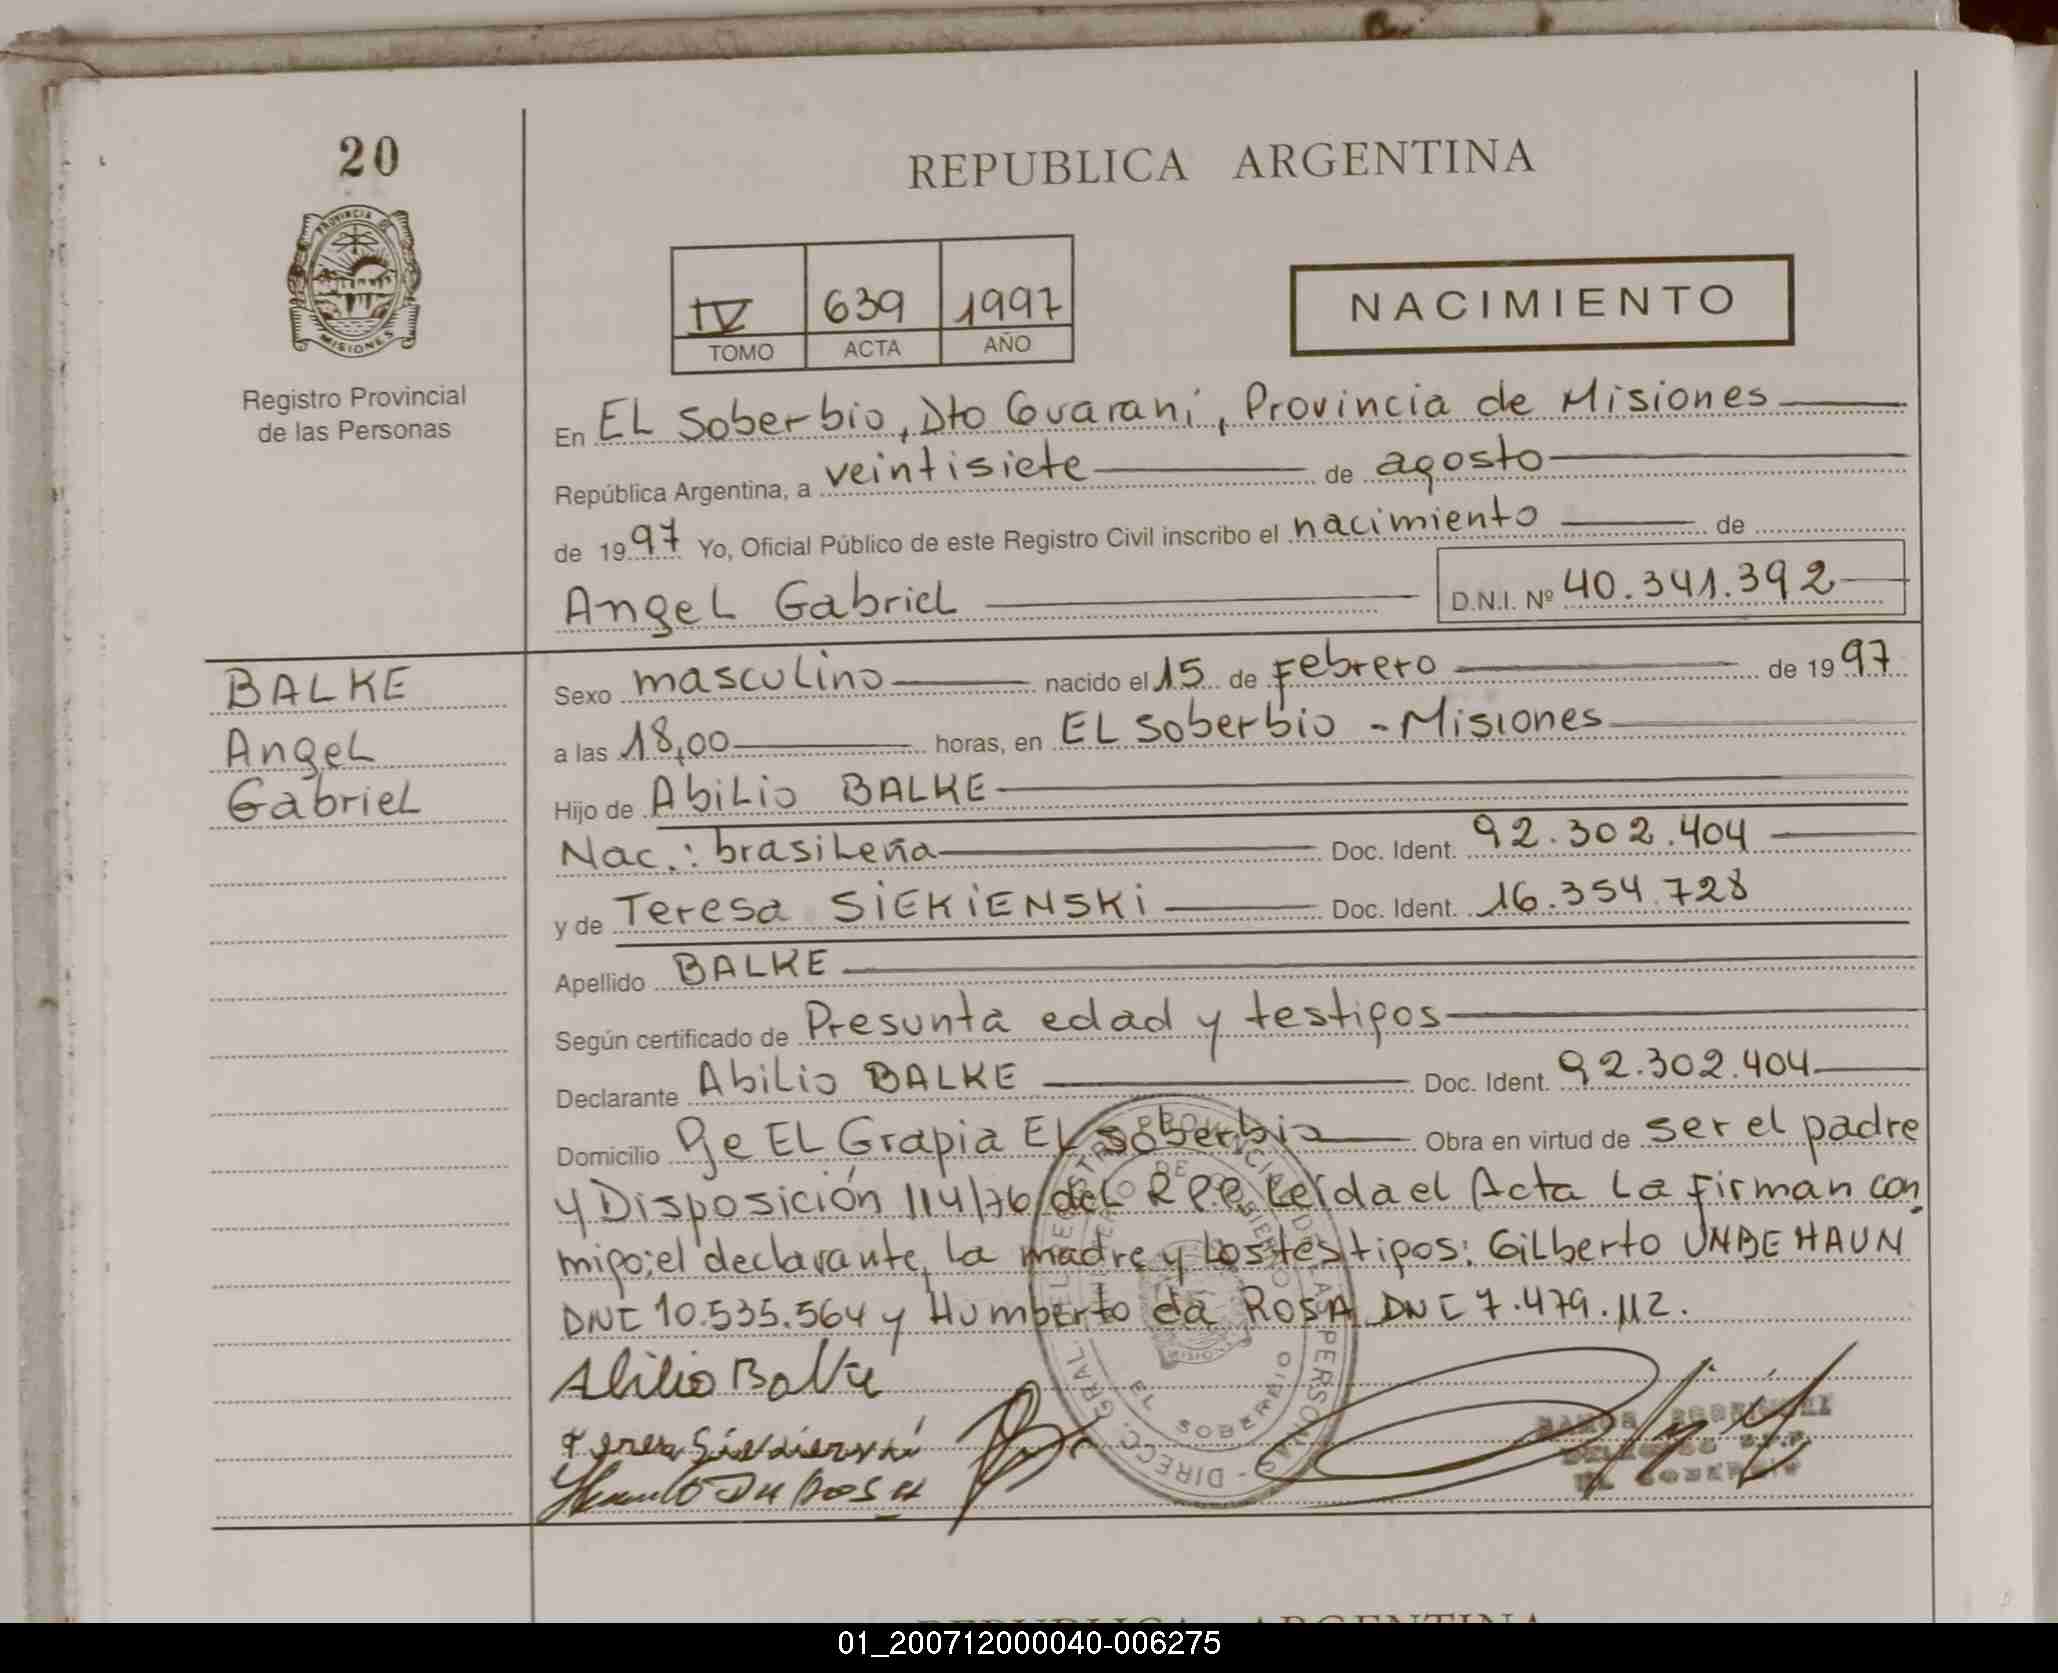 20
REPUBLICA ARGENTINA
PROVINCIA DE
MISIONES
Registro Provincial
de las Personas
IV 639 1997
TOMO ACTA AÑO
NACIMIENTO
En EL Soberbio, Dto Guaraní, Provincia de Misiones
República Argentina, a veintisiete de agosto
de 1997 Yo, Oficial Público de este Registro Civil inscribo el nacimiento de
Angel Gabriel D.N.I. Nº 40.341.392
BALKE
Angel
Gabriel
Sexo masculino nacido el 15 de Febrero de 1997
a las 18,00 horas, en EL Soberbio - Misiones
Hijo de Abilio BALKE
Nac.: brasileña Doc. Ident. 92.302.404
y de Teresa SIEKIENSKI Doc. Ident. 16.354.728
Apellido BALKE
Según certificado de Presunta edad y testigos
Declarante Abilio BALKE Doc. Ident. 92.302.404
Domicilio Pje EL Grapia EL Soberbio Obra en virtud de ser el padre
y Disposición 114/76 del R.P.P. Leída el Acta la firman con
migo; el declarante, la madre y los testigos: Gilberto UNBEHAUN
DNI 10.535.564 y Humberto da ROSA DNI 7.479.112.
Abilio Balke
Teresa Siekienski
EL SOBERBIO
01_200712000040-006275